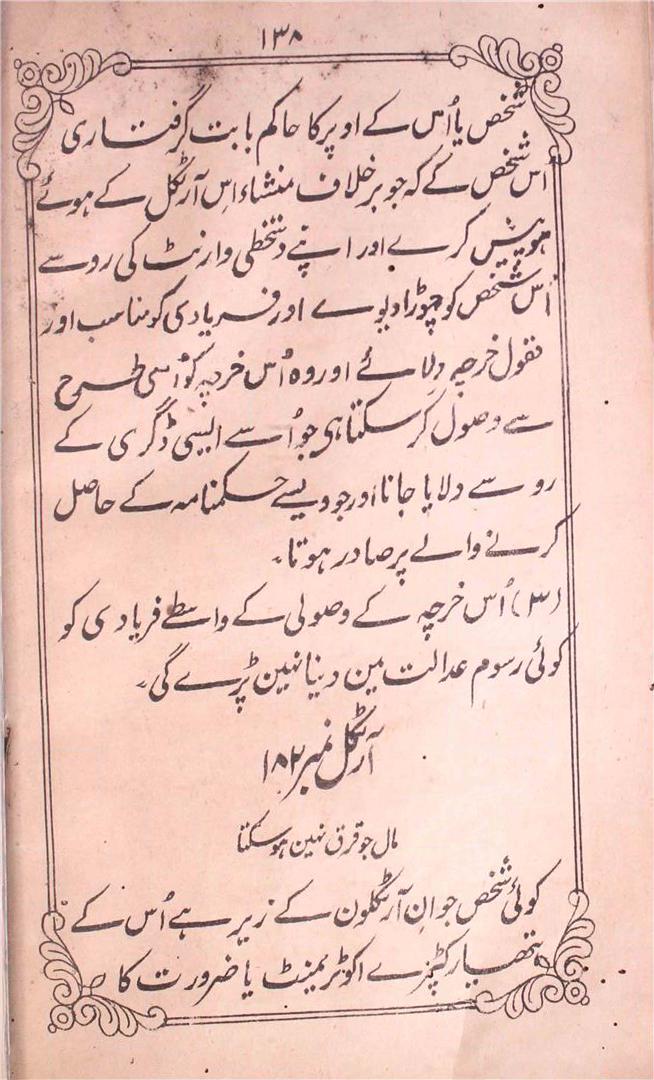 ۱۳۸
شخص یا اُس کے اوپر کا حاکم بابت گرفتاری
اُس شخص کے کہ جو برخلاف منشاء اِس آرٹکل کے ہوئے
ہو پیش کرے اور اپنے دستخطی وارنٹ کی رو سے
اُس شخص کو چھوڑا دیوے اور فریادی کو مناسب اور
معقول خرچہ دِلائے اور وہ اُس خرچہ کو اُسی طرح
سے وصول کر سکتا ہی جو اُسے ایسی ڈگری کے
رو سے دلایا جاتا اور جو ویسے حکمنامہ کے حاصل
کرنے والے پر صادر ہوتا۔
(۳) اُس خرچہ کے وصولی کے واسطے فریادی کو
کوئی رسوم عدالت مین دینا نہین پڑے گی۔
آرٹکل نمبر ۱۸۲
مال جو قرق نہین ہوسکتا
کوئی شخص جو اِن آرٹکلون کے زیر ہے اُس کے
ہتھیار کپڑے اکوٹریمنٹ یا ضرورت کا